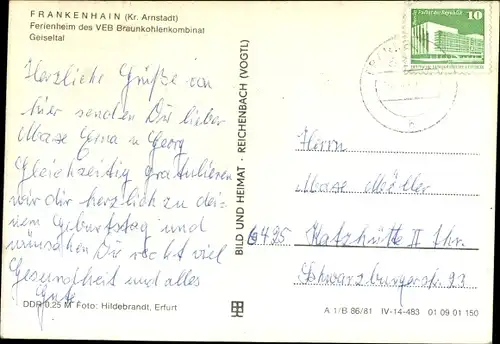 FRANKENHAIN (Kr. Arnstadt)
Ferienheim des VEB Braunkohlenkombinat
Geiseltal
Herzliche Grüße von
hier senden Dir lieber
Maxe Erna u. Georg
Gleichzeitig gratulieren
wir dir herzlich zu dei-
nem Geburtstag und
wünschen Dir recht viel
Gesundheit und alles
Gute
DDR 0,25 M Foto: Hildebrandt, Erfurt
BILD UND HEIMAT · REICHENBACH (VOGTL)
10
Herrn
Maxe
6495 Katzhütte II Thr.
Schwarzburgerstr. 93
A 1/B 86/81 IV-14-483 01 09 01 150